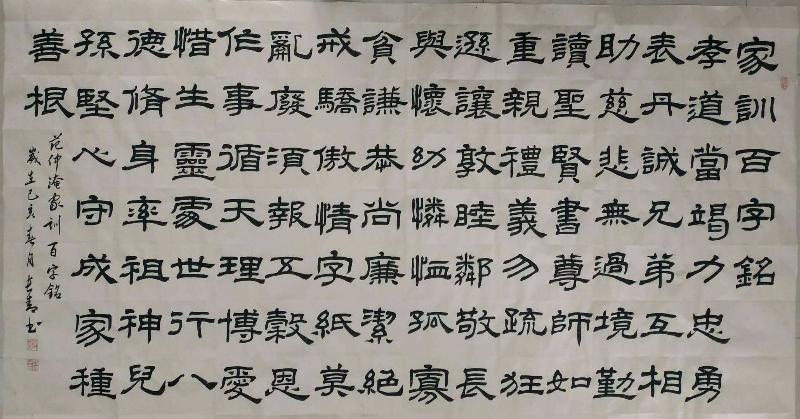 家訓百字銘
孝道當竭力忠勇
表丹誠兄弟互相
助慈悲無過境勤
讀聖賢書尊師如
重親禮義勿疏狂
遜讓敦睦鄰敬長
與懷幼憐恤孤寡
貧謙恭尚廉潔絕
戒驕傲情字紙莫
亂廢須報五穀恩
作事循天理博愛
惜生靈處世行八
德脩身率祖神兒
孫堅心守成家種
善根
范仲淹家訓百字銘
歲在己亥春月書